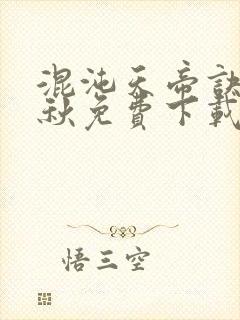 混沌天帝訣
秋免費下載
悟三空